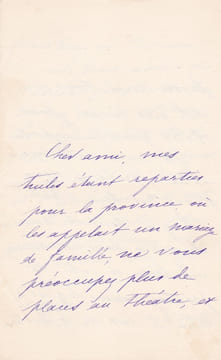 Cher ami, mes
toiles étant reparties
pour la province où
les appelait un mariage
de famille, ne vous
préoccupez plus de
places au théâtre, et